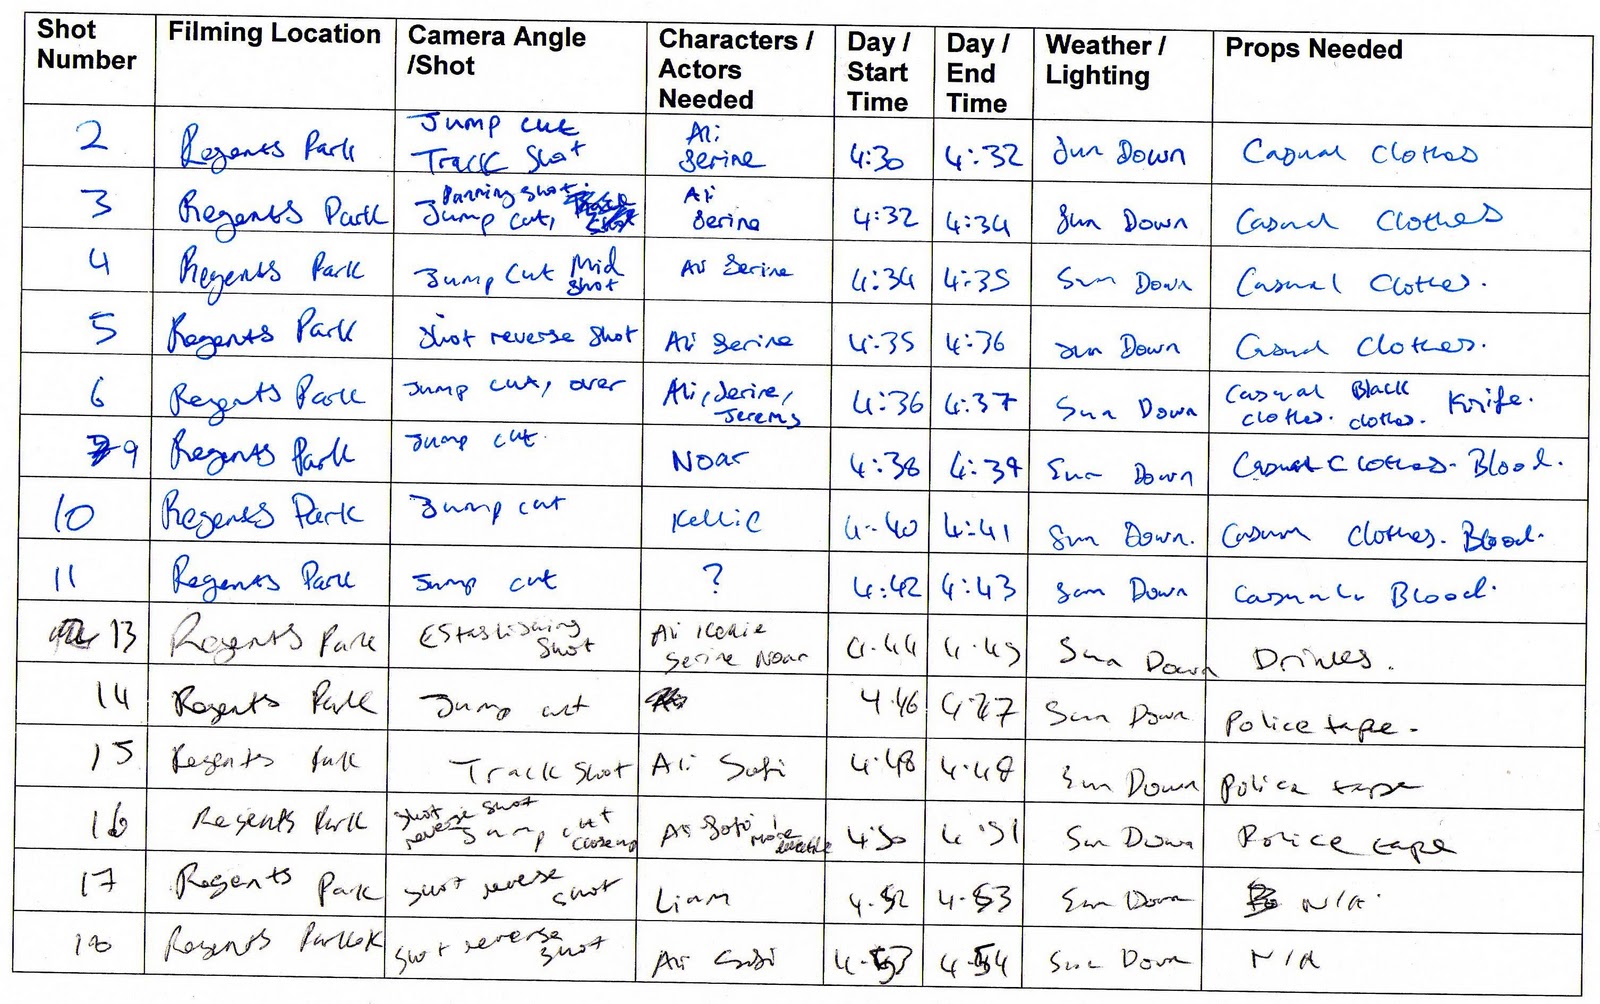 Shot Number | Filming Location | Camera Angle /Shot | Characters / Actors Needed | Day / Start Time | Day / End Time | Weather / Lighting | Props Needed
2 | Regents Park | Jump cut Track Shot | Ali Serine | 4:30 | 4:32 | Sun Down | Casual Clothes
3 | Regents Park | Panning shot Jump cut, | Ali Serine | 4:32 | 4:34 | Sun Down | Casual Clothes
4 | Regents Park | Jump Cut Mid Shot | Ali Serine | 4:34 | 4:35 | Sun Down | Casual Clothes.
5 | Regents Park | Shot reverse shot | Ali Serine | 4:35 | 4:36 | Sun Down | Casual Clothes.
6 | Regents Park | Jump cut, over | Ali, Serine, Jeremy | 4:36 | 4:37 | Sun Down | Casual clothes. Black clothes. Knife.
9 | Regents Park | Jump cut. | Noar | 4:38 | 4:39 | Sun Down | Casual Clothes. Blood.
10 | Regents Park | Jump cut | Kellie | 4:40 | 4:41 | Sun Down. | Casual Clothes. Blood.
11 | Regents Park | Jump cut | ? | 4:42 | 4:43 | Sun Down | Blood.
13 | Regents Park | Establishing Shot | Ali Kellie Serine Noar | 4.44 | 4.45 | Sun Down | Drinks.
14 | Regents Park | Jump cut | 4.46 | 4:47 | Sun Down | Police tape.
15 | Regents Park | Track Shot | Ali Sofi | 4:48 | Sun Down | Police tape
16 | Regents Park | Shot reverse shot Jump cut closeup | Ali Sofi | 4:50 | 4:51 | Sun Down | Police tape
17 | Regents Park | Shot reverse shot | Liam | 4.52 | 4.53 | Sun Down | N/A.
18 | Regents Park | Shot reverse shot | Ali Sofi | 4.53 | 4.54 | Sun Down | N/A